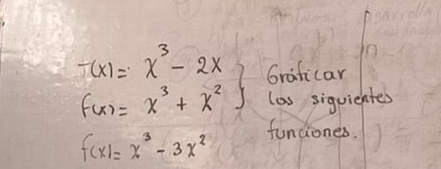 f(x)= x³ - 2x
f(x)= x³ + x²
f(x)= x³ - 3x²
Gráficar
las siguientes
funciones.